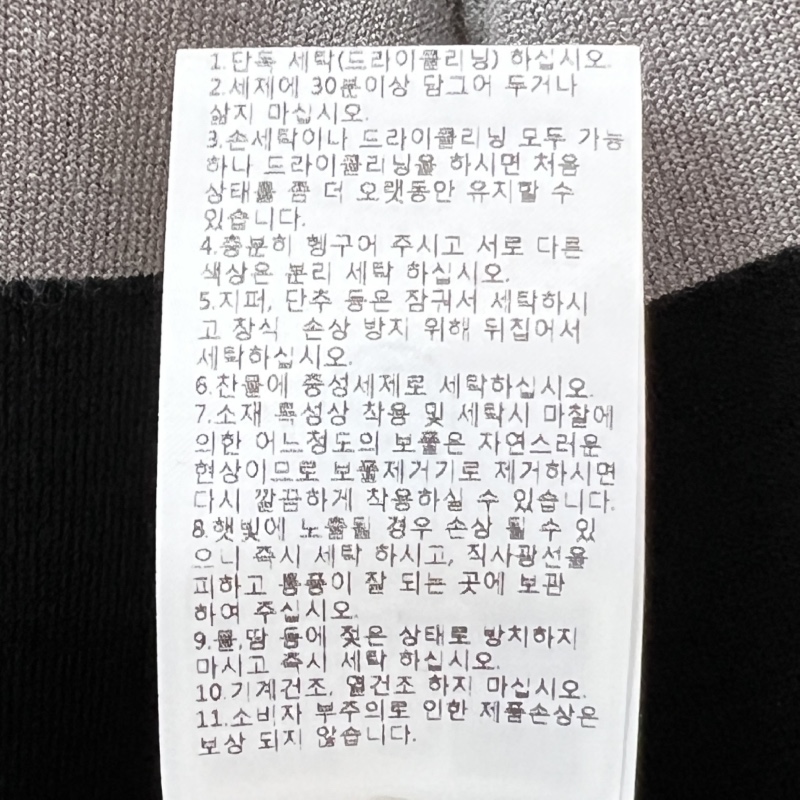 1.단독 세탁(드라이클리닝) 하십시오.
2.세제에 30분이상 담그어 두거나
삶지 마십시오.
3.손세탁이나 드라이클리닝 모두 가능
하나 드라이클리닝을 하시면 처음
상태를 좀 더 오랫동안 유지할 수
있습니다.
4.충분히 헹구어 주시고 서로 다른
색상은 분리 세탁 하십시오.
5.지퍼, 단추 등은 잠궈서 세탁하시
고 장식 손상 방지 위해 뒤집어서
세탁하십시오.
6.찬물에 중성세제로 세탁하십시오.
7.소재 특성상 착용 및 세탁시 마찰에
의한 어느정도의 보풀은 자연스러운
현상이므로 보풀제거기로 제거하시면
다시 깔끔하게 착용하실 수 있습니다.
8.햇빛에 노출될 경우 손상 될 수 있
으니 즉시 세탁 하시고, 직사광선을
피하고 통풍이 잘 되는 곳에 보관
하여 주십시오.
9.물,땀 등에 젖은 상태로 방치하지
마시고 즉시 세탁 하십시오.
10.기계건조, 열건조 하지 마십시오.
11.소비자 부주의로 인한 제품손상은
보상 되지 않습니다.